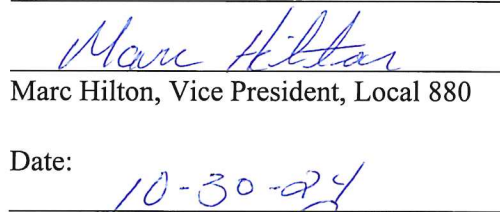 Marc Hilton
Marc Hilton, Vice President, Local 880
Date:
10-30-24